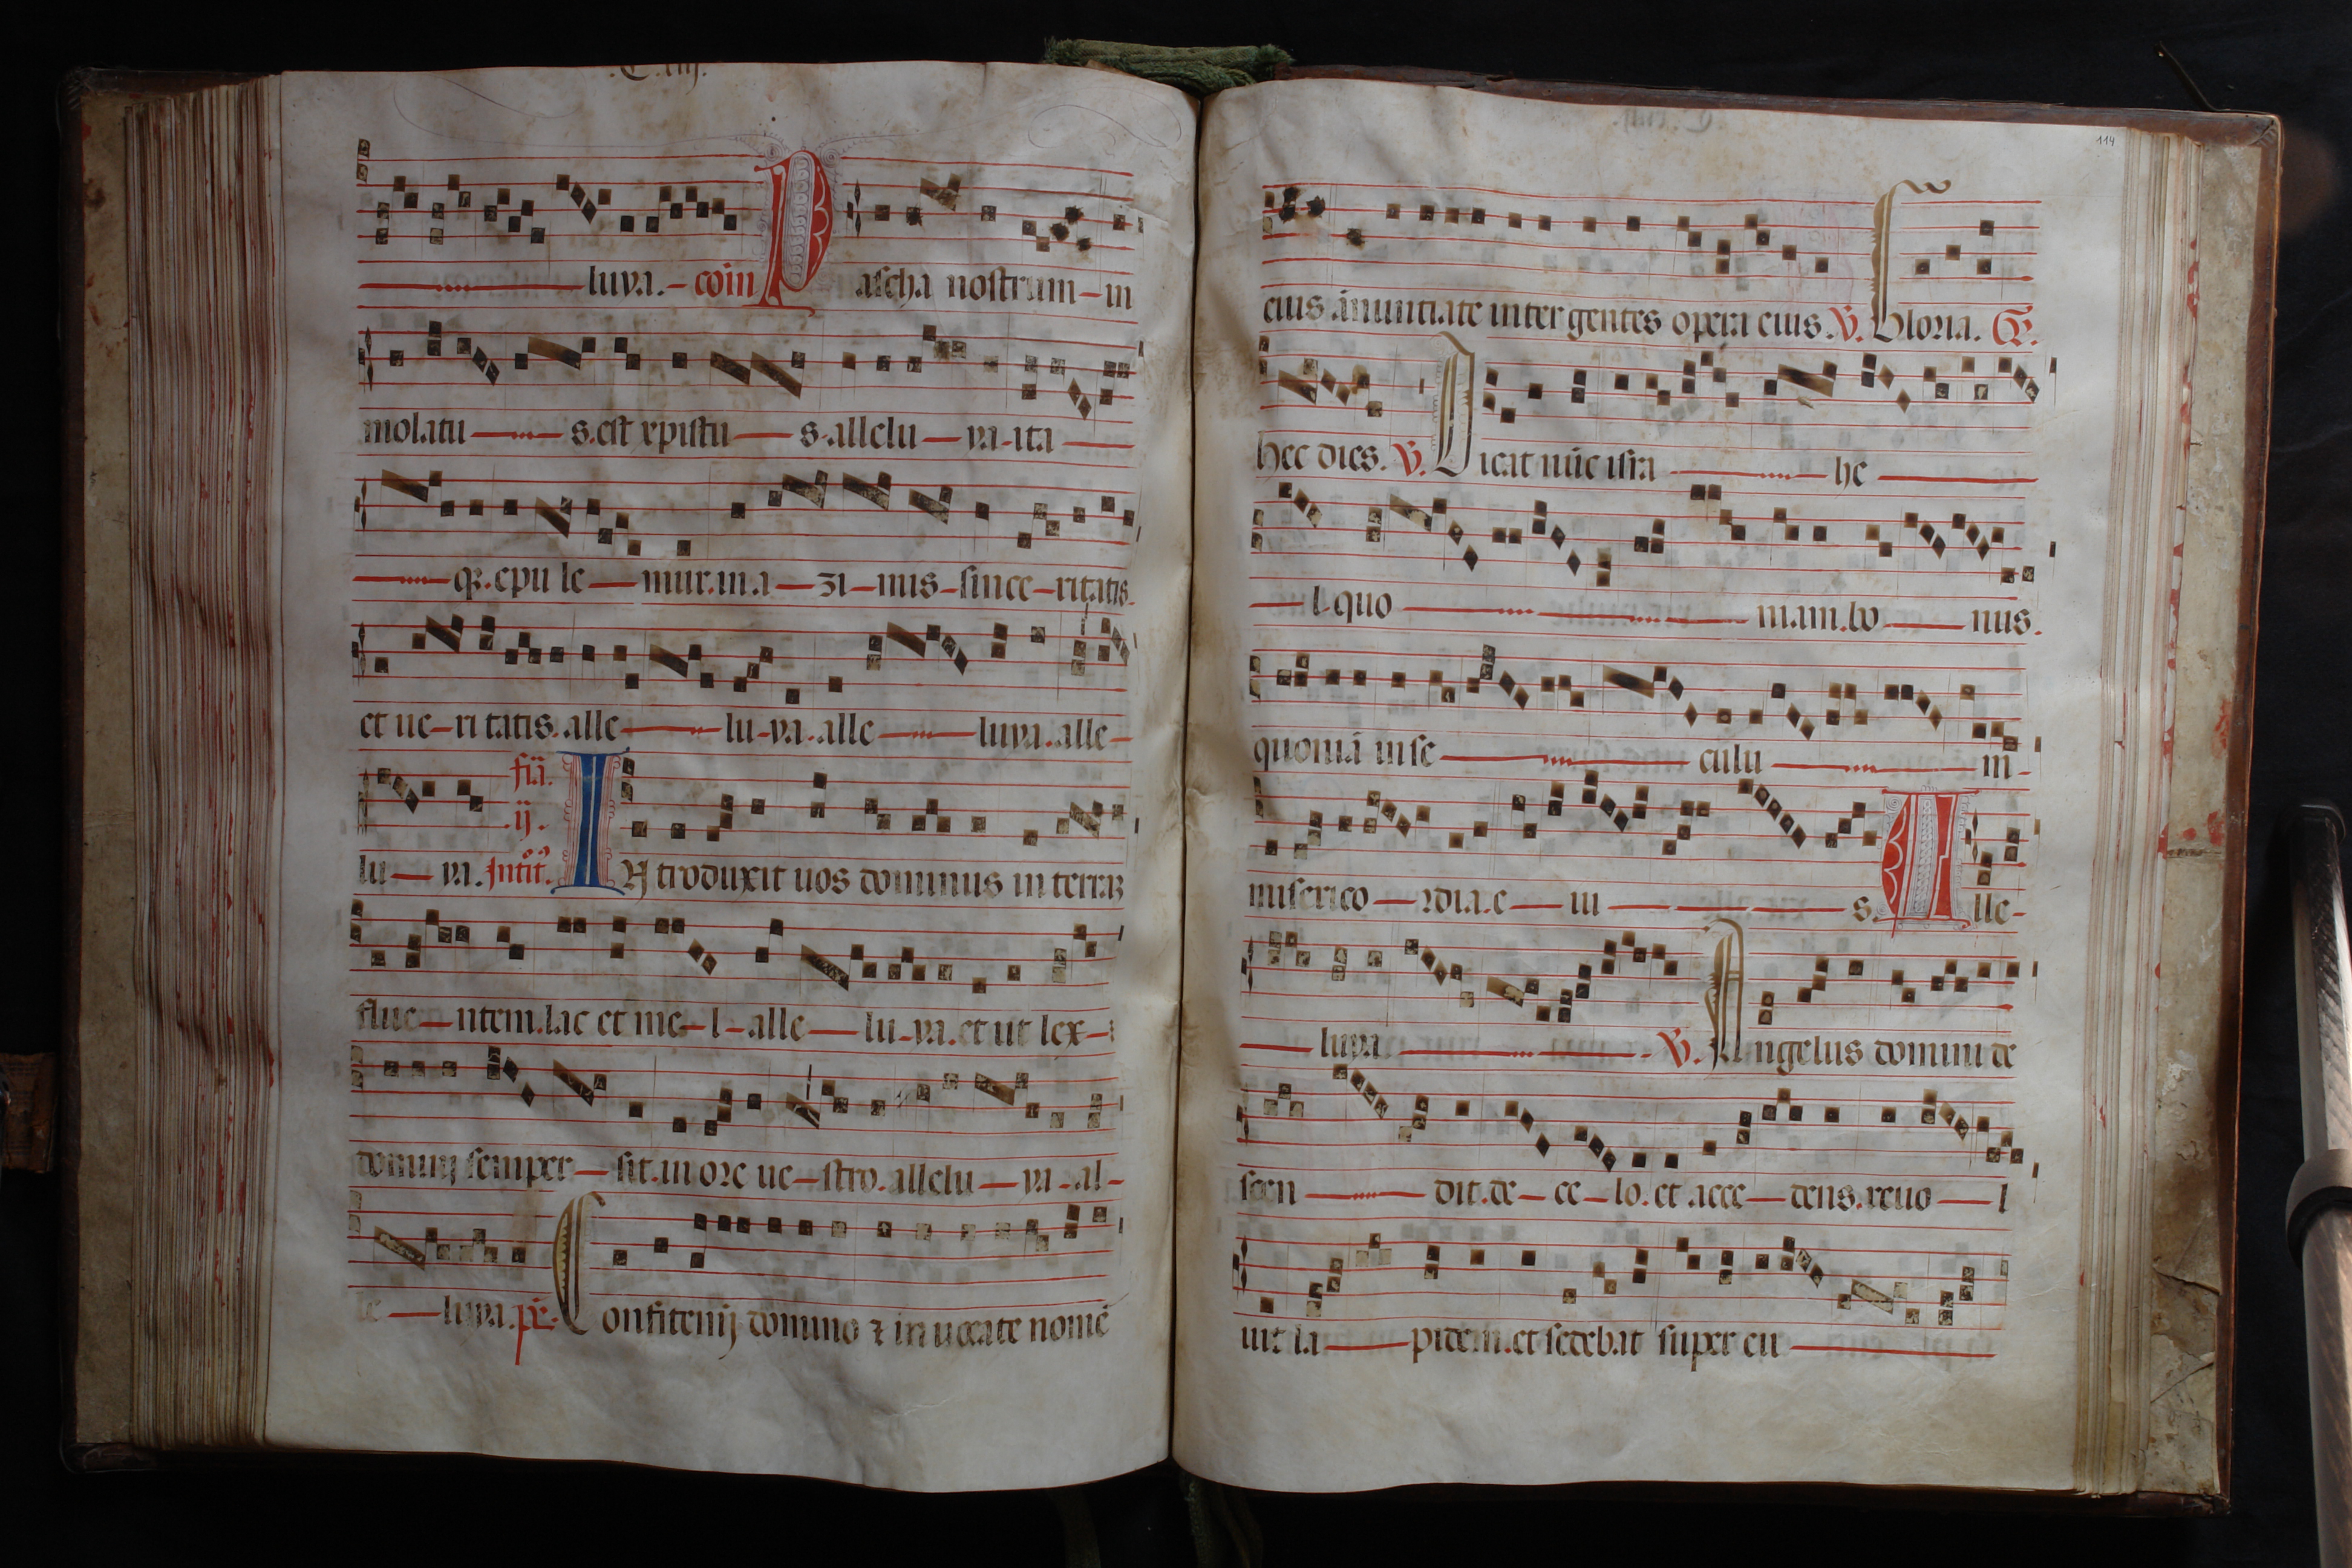 luya. coiñ Pascha nostrum in
molatus. est xpistus. allelu ya ita
qꝫ. epulemur. in azimis sinceritatis.
et veritatis. alle lu ya. alle luya. alle
fiã.
ij.
lu ya. Introitꝰ. IN troduxit uos dominus in terrã
fluentem. lac et mel alle lu ya. et ut lex
domini semper sit. in ore uestro. allelu ya al
le luya. ps̃. Confitemĩ domino ⁊ in uocate nomẽ
114
eius ãnuntiate inter gentes opera eius. V. Gloria. Gr.
hec dies. V. Dicat nũc isra he
l. quo niam. bo nus.
quoniã in se culu m
misericordia. e iu s. Alle
luya V. Angelus domini de
scen dit. de celo. et acce dens. reuo l
uit la pidem. et sedebat super eu